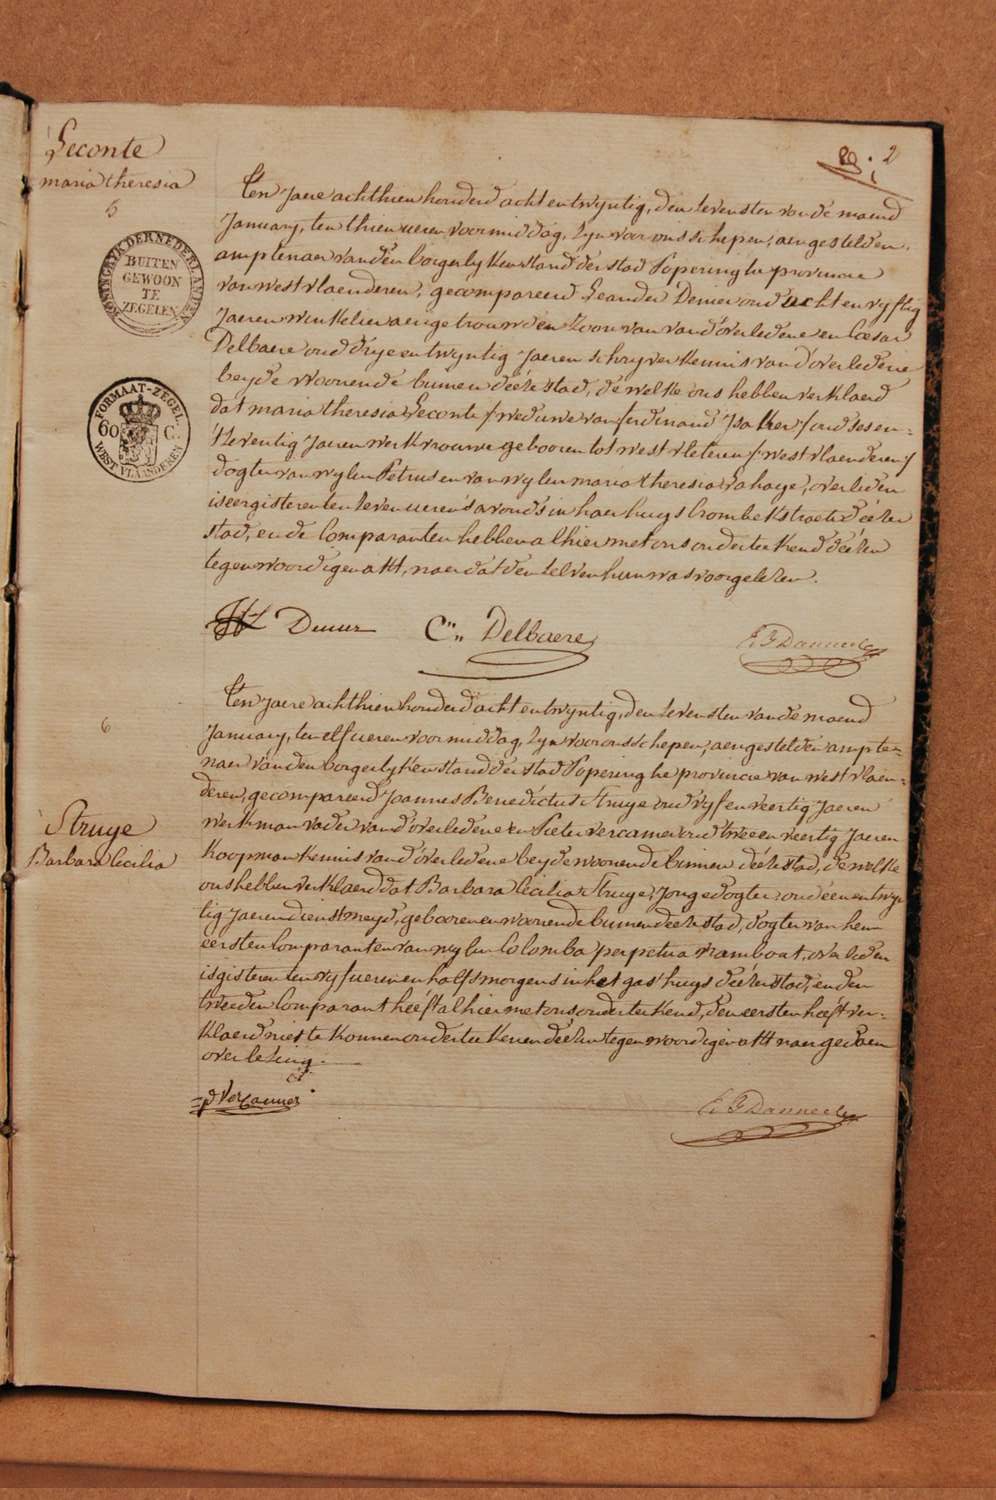 89: 2
Leconte
maria theresia
5
KONINGRYK DER NEDERLANDEN
BUITEN
GEWOON
TE
ZEGELEN
FORMAAT-ZEGEL
60 C.
WEST VLAANDEREN
Ten jaere achthien honderd acht en twyntig, den sevensten van de maend
January, ten thien ueren voormiddag, zyn voor ons schepen, aengestelden
amptenaer van den borgerlyken stand der stad Poperinghe provincie
van westvlaenderen, gecompareerd Leander Denier oud acht en vyftig
Jaeren winkelier aengetrouwden zoon van van d'overledene en Cæsar
Delbaere oud drye en twyntig Jaeren schryver kennis van d'overledene
beyde woonende binnen déézen stad, de welke ons hebben verklaerd
dat maria theresia Leconte /weduwe van ferdinand Isaker/ oud ses en
t'seventig Jaeren werkvrouwe gebooren tot westvleteren /westvlaenderen/
dogter van wylen Petrus en van wylen maria theresia Lahaye, overleden
is eergisteren ten seven ueren s'avonds in haer huys krombekstraete déézer
stad, en de Comparanten hebben alhier met ons onderteekend déézen
tegenwoordigen akt, naer dat den zelven hun was voorgelezen.
Denier C''' Delbaere E F Danneel
6
Struye
Barbara Cecilia
Ten jaere achthien honderd acht en twyntig, den sevensten van de maend
January, ten elf ueren voormiddag, zyn voor ons schepen, aengestelden ampte-
naer van den borgerlyken stand der stad Poperinghe provincie van westvlaen-
deren, gecompareerd Joannes Benedictus Struye oud vyf en veertig Jaeren
werkman vader van d'overledene en Pieter vercamer oud twee en veertig Jaeren
koopman kennis van d'overledene beyde woonende binnen déézer stad, de welke
ons hebben verklaerd dat Barbara Cecilia Struye, Jonge dogter oud éénentwyn-
tig Jaeren dienstmeyd, gebooren en woonende binnen déézer stad, dogter van hem
eersten Comparant en van wylen Colomba perpetua Ramboat, overleden
is gisteren ten vyf ueren en half s'morgens in het gasthuys déézer stad, en den
tweeden Comparant heeft alhier met ons onderteekend, den eersten heeft ver-
klaerd niet te konnen onderteekenen déézen tegenwoordigen akt naer gedaen
overlezing.
P Vercamer E F Danneel